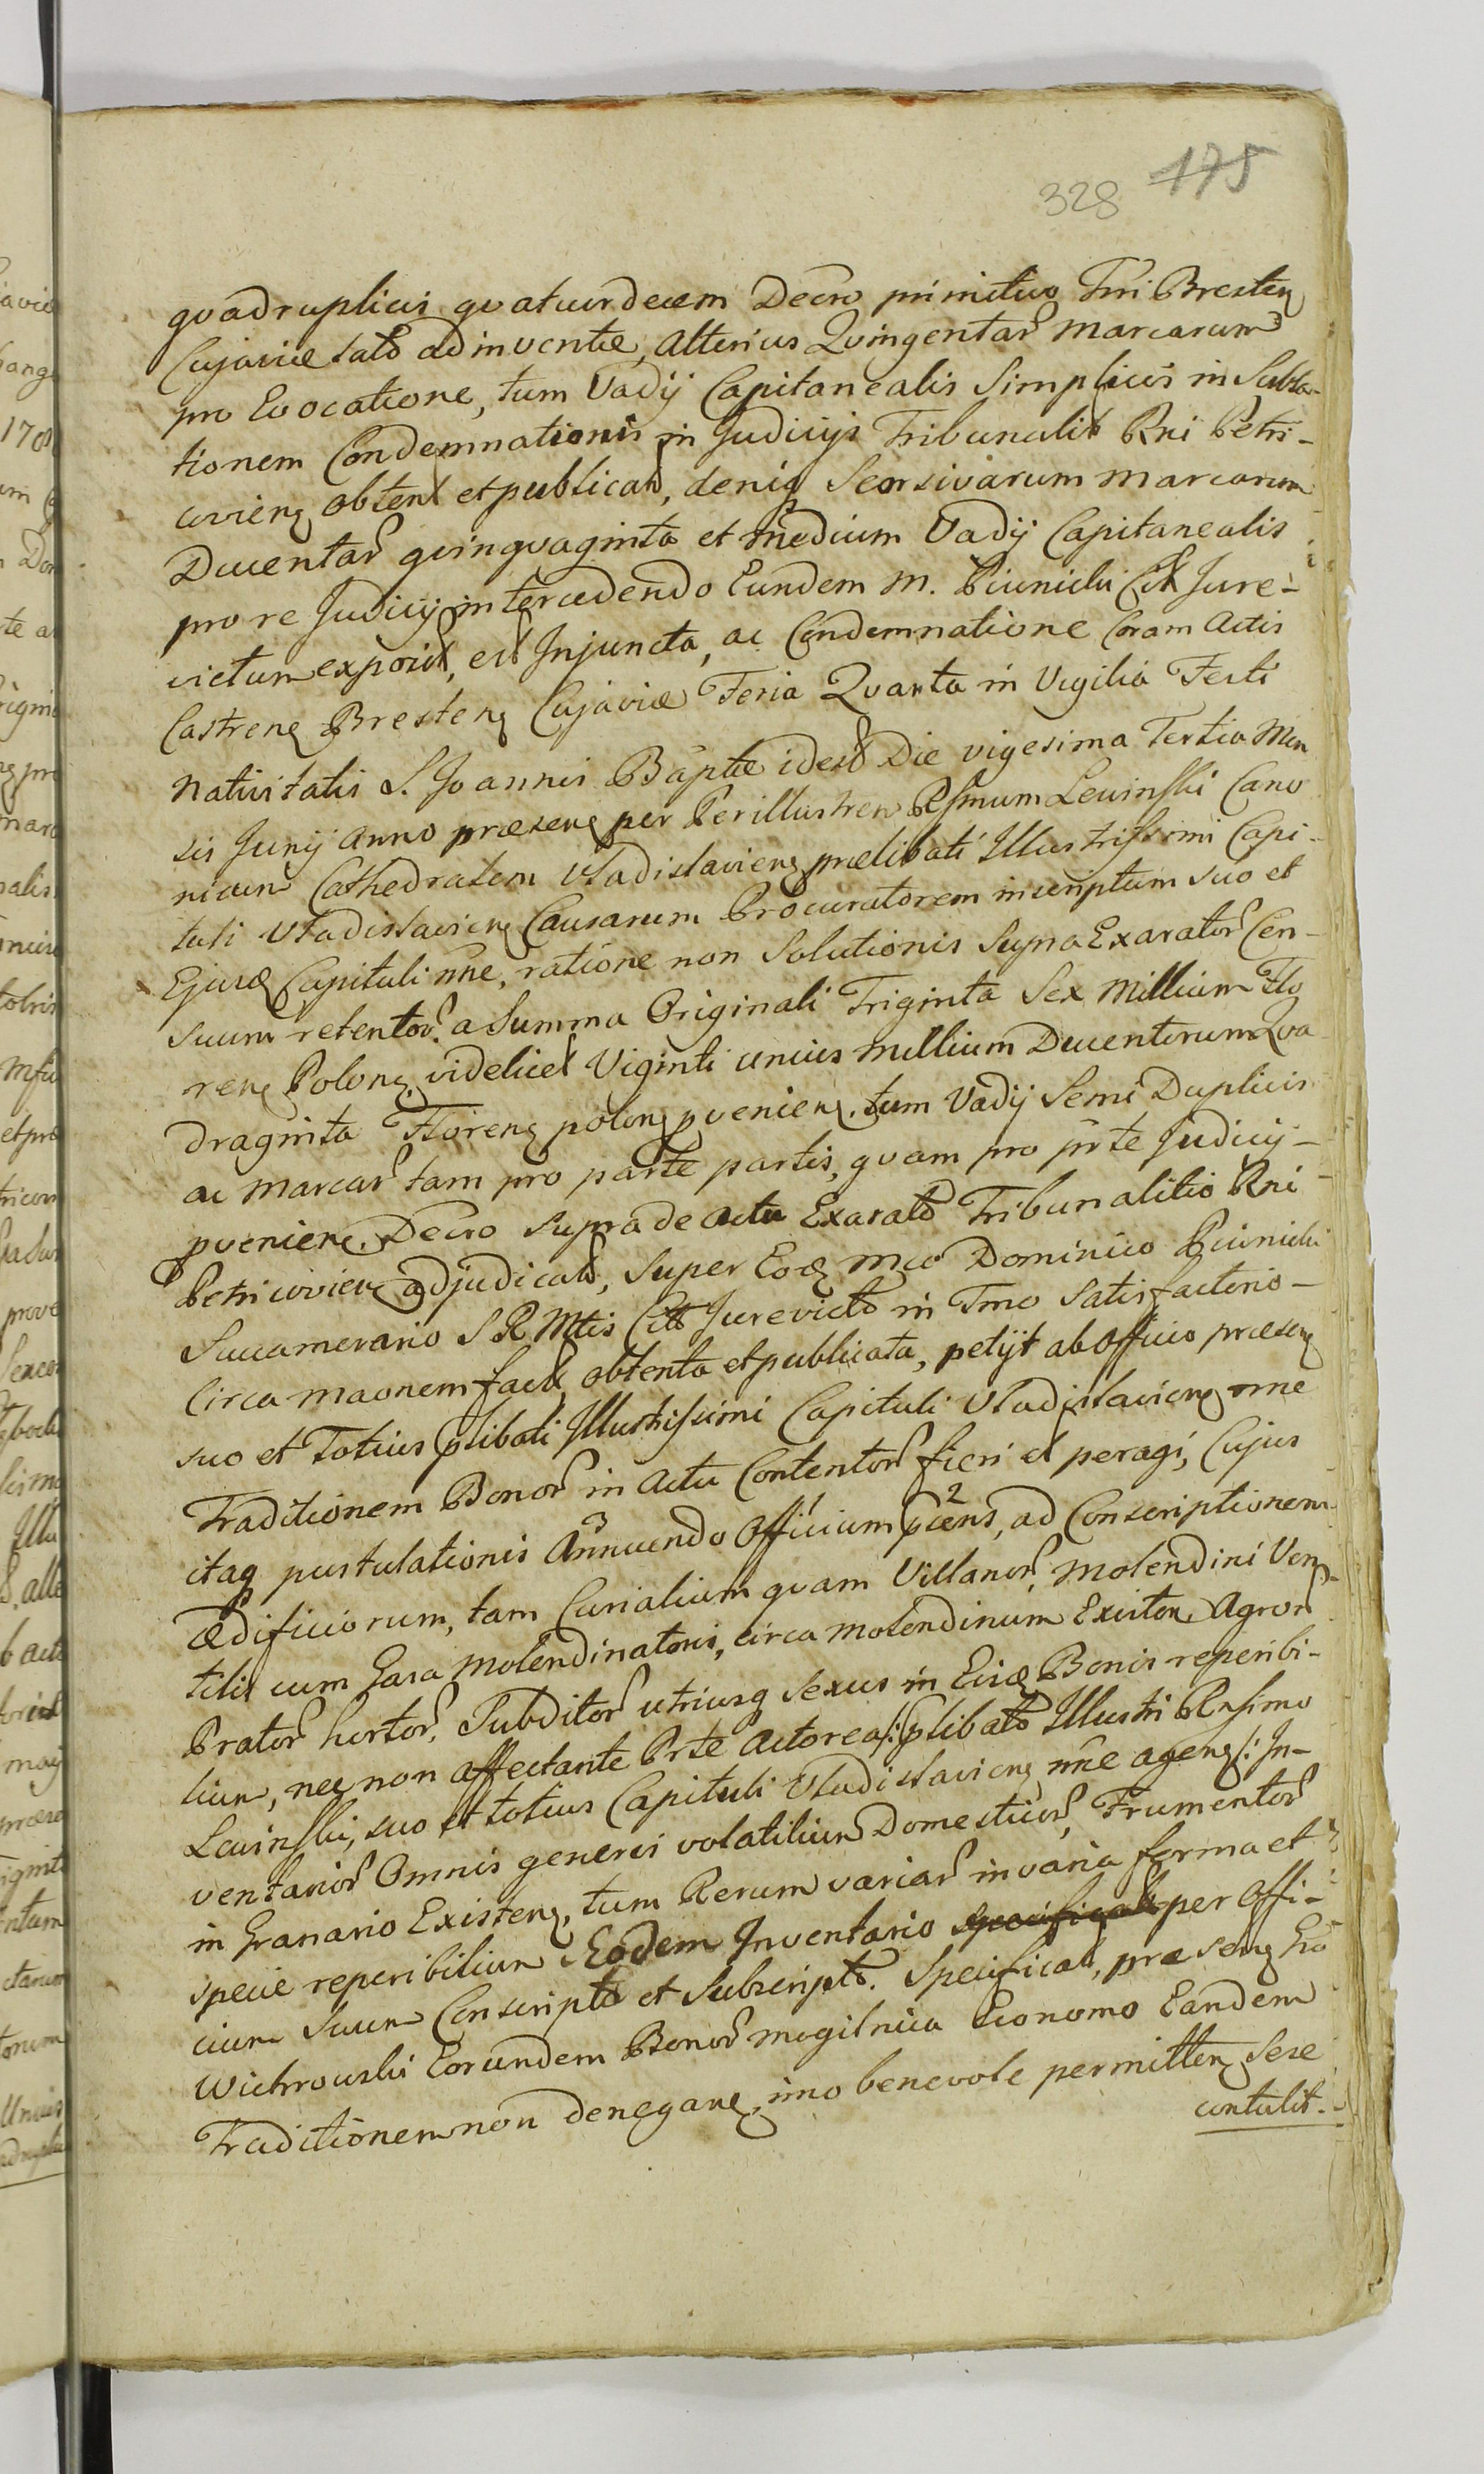 328 175
quadruplicis quatuordecem Decro primitivo Tmi Bresten
Cujaviæ lato adinventæ, Alterius Quingentar Marcarum
pro Evocatione, tum Vadij Capitanealis Simplicis in Subla-
tionem Condemnationis in Judicijs Tribunalit Rni Petri-
covien obtent et publicat, deniq Seorsivarum Marcarum
Ducentar quinquaginta et medium Vadij Capitanealis
pro re Judicij intercedendo Eundem M. Piwnicki Citt Jure-
victum exposit, est Injuncta, ac Condemnatione Coram Actis
Castren Bresten Cujaviæ Feria Quarta in Vigilia Festi
Nativitatis S. Joannis Baptæ idest Die vigesima Tertia Men
sis Junij Anno præsen per Perillustrem Rssmum Lewinski Cano
nicum Cathedralem Vladislavien prælibati Illustrissimi Capi-
tuli Vladislavien Causarum Procuratorem inscriptum suo et
Ejusd Capituli nne, ratione non Solutionis Supra Exarator Cen-
suum retentor a Summa Originali Triginta Sex Millium Flo
ren Polon, videlicet Viginti unius Millium Ducentorum Qua
draginta Floren polon pvenien, tum Vadij Semi Duplicis
ac Marcar tam pro parte partis, quam pro prte Judicij-
pvenien. Decro supra de actu Exarato Tribunalitio Rni
Petricovien adjudicat, Super Eod Mco Dominico Piwnicki
Succamerario S R Mtis Citt Jurevicto in Tmo Satisfactorio-
Circa maonem fact, obtenta et publicata, petijt ab Officio præsen
suo et Totius plibati Illustrissimi Capituli Vladislavien nne
Traditionem Bonor in Actu Contentor fieri et peragi, Cujus
itaq postulationis Annuendo Officium præns, ad Conscriptionem
Ædificiorum, tam Curialium quam Villanor, Molendini Ven-
tilis cum Gasa Molendinatoris, circa Molendinum Existen, Agror
Prator hortor, Subditor utriusq Sexus in Eisd Bonis reperibi-
lium, nec non affectante Prte Actorea /: plibato Illustri Rssimo
Lewinski, suo et totius Capituli Vladislavien nne agen :/ In-
ventarior Omnis generis volatilium Domesticor, Frumentor
in Granario Existen, tum Rerum variar in varia forma et
specie reperibilium Eodem Inventario specificat per Offi-
cium Suum Conscripto et Subscripto. Specificat, præsen Gro
Wichrowski Eorundem Bonor Mogilnica Economo Eandem
Traditionem non denegan, imo benevole permitten Sese
contulit.